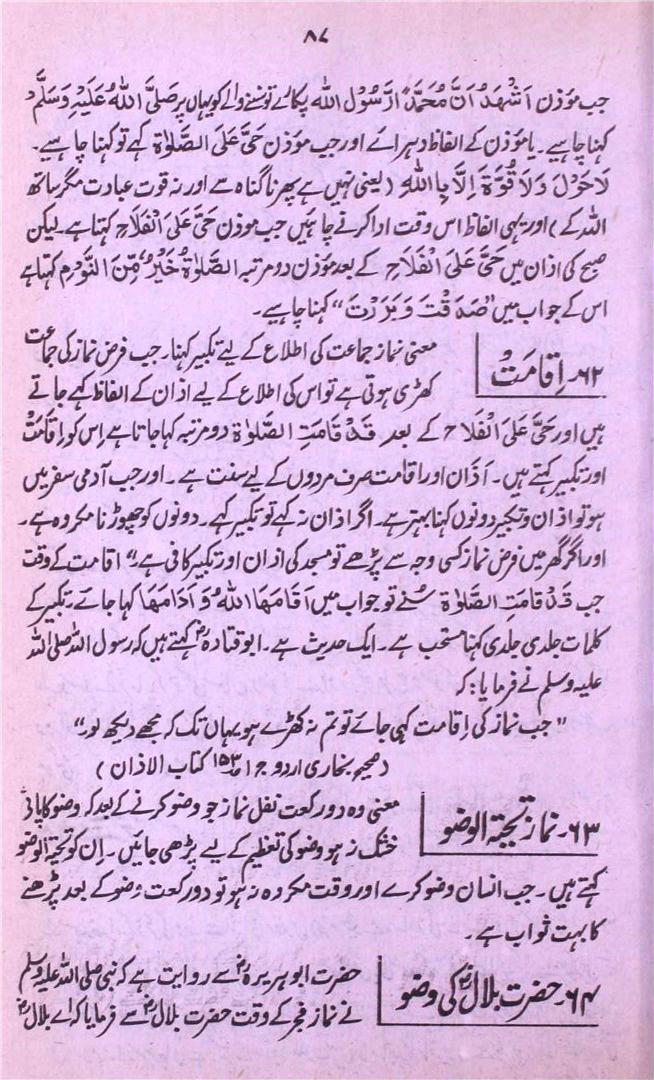 ۸۷
جب مؤذن اَشْهَدُ اَنَّ مُحَمَّدًا رَّسُوْلُ اللّٰه پکارے تو سننے والے کو یہاں پر صَلَّی اللّٰهُ عَلَیْهِ وَسَلَّم
کہنا چاہیے۔ یا مؤذن کے الفاظ دہرائے اور جب مؤذن حَیَّ عَلَی الصَّلٰوة کہے تو کہنا چاہیے۔
لَا حَوْلَ وَلَا قُوَّةَ اِلَّا بِاللّٰهِ (یعنی نہیں ہے پھرنا گناہ سے اور نہ قوت عبادت مگر ساتھ
اللہ کے) اور یہی الفاظ اس وقت ادا کرنے چاہیں جب مؤذن حَیَّ عَلَی الْفَلَاحِ کہتا ہے۔ لیکن
صبح کی اذان میں حَیَّ عَلَی الْفَلَاحِ کے بعد مؤذن دو مرتبہ الصَّلٰوةُ خَیْرٌ مِّنَ النَّوْمِ کہتا ہے
اس کے جواب میں "صَدَقْتَ وَبَرَرْتَ" کہنا چاہیے۔
۶۲۔ اِقَامَتْ
معنی نماز جماعت کی اطلاع کے لیے تکبیر کہنا۔ جب فرض نماز کی جماعت
کھڑی ہوتی ہے تو اس کی اطلاع کے لیے اذان کے الفاظ کہے جاتے
ہیں اور حَیَّ عَلَی الْفَلَاح کے بعد قَدْ قَامَتِ الصَّلٰوة دو مرتبہ کہا جاتا ہے اس کو اِقَامَتْ
اور تکبیر کہتے ہیں۔ اَذَان اور اقامت صرف مردوں کے لیے سنت ہے۔ اور جب آدمی سفر میں
ہو تو اذان و تکبیر دونوں کہنا بہتر ہے۔ اگر اذان نہ کہے تو تکبیر کہے۔ دونوں کو چھوڑنا مکروہ ہے۔
اور اگر گھر میں فرض نماز کسی وجہ سے پڑھے تو مسجد کی اذان اور تکبیر کافی ہے" اقامت کے وقت
جب قَدْ قَامَتِ الصَّلٰوة سُنے تو جواب میں اَقَامَهَا اللّٰهُ وَ اَدَامَهَا کہا جائے۔ تکبیر کے
کلمات جلدی جلدی کہنا مستحب ہے۔ ایک حدیث ہے۔ ابو قتادہؓ کہتے ہیں کہ رسول اللہ صلی اللہ
علیہ وسلم نے فرمایا: کہ
"جب نماز کی اِقامت کہی جائے تو تم نہ کھڑے ہو یہاں تک کہ مجھے دیکھ لو۔"
(صحیح بخاری اردو ج ۱ ص ۱۵۳ کتاب الاذان)
۶۳۔ نماز تحیۃ الوضو
معنی وہ دو رکعت نفل نماز جو وضو کرنے کے بعد کہ وضو کا پانی
خشک نہ ہو وضو کی تعظیم کے لیے پڑھی جائیں۔ اِن کو تحیۃ الوضو
کہتے ہیں۔ جب انسان وضو کرے اور وقت مکروہ نہ ہو تو دو رکعت وضو کے بعد پڑھنے
کا بہت ثواب ہے۔
۶۴۔ حضرت بلالؓ کی وضو
حضرت ابو ہریرہؓ سے روایت ہے کہ نبی صلی اللہ علیہ وسلم
نے نماز فجر کے وقت حضرت بلالؓ سے فرمایا کہ اے بلالؓ